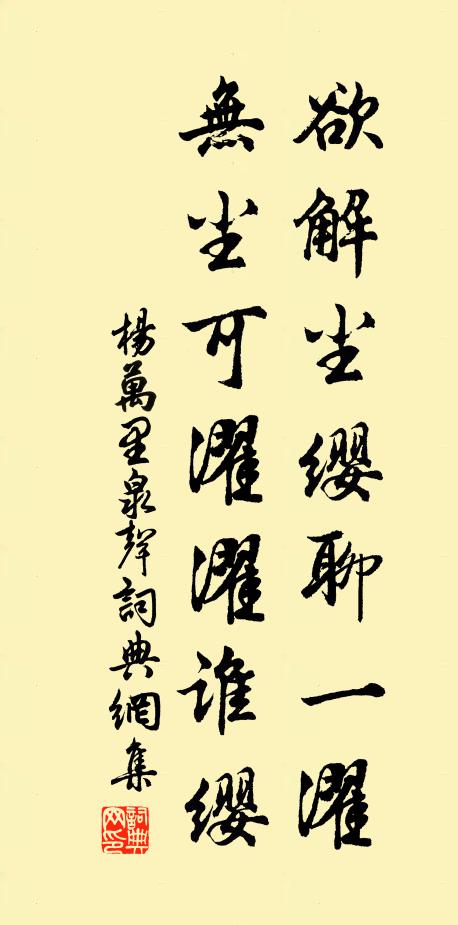 欲解尘缨聊一濯
無尘可濯濯谁缨
楊萬里泉聲詞典網集
詞典网印